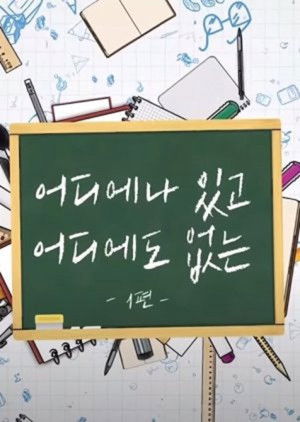 어디에나 있고
어디에도 없는
- 1편 -